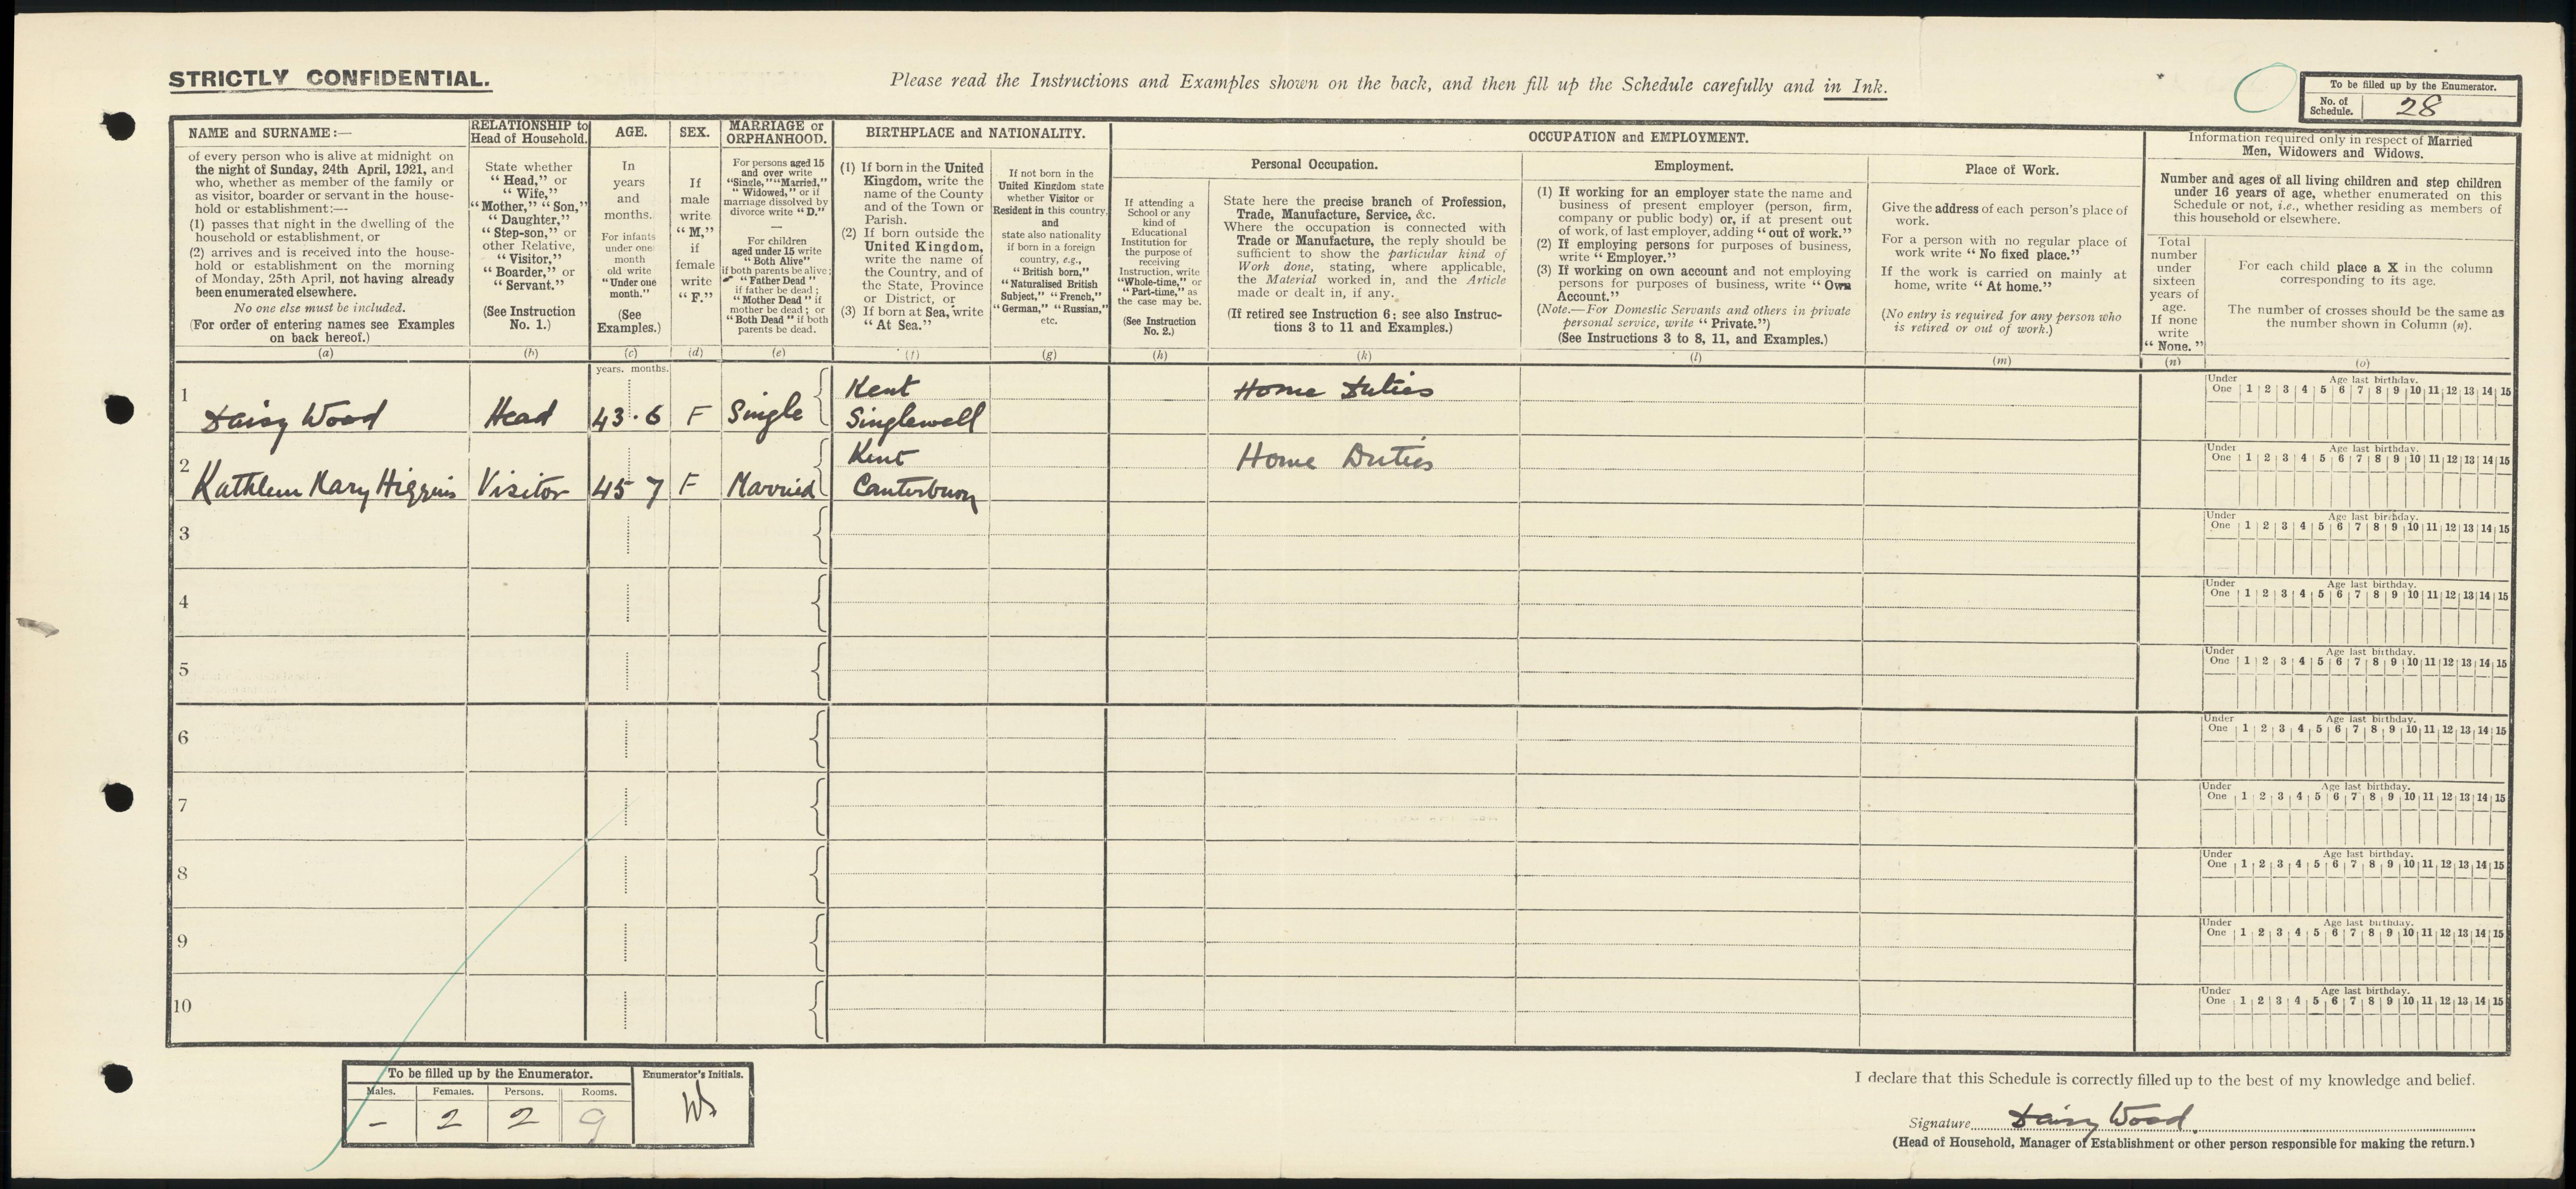 STRICTLY CONFIDENTIAL.
Please read the Instructions and Examples shown on the back, and then fill up the Schedule carefully and in Ink.
To be filled up by the Enumerator.
No. of Schedule. 28
NAME and SURNAME:—
of every person who is alive at midnight on
the night of Sunday, 24th April, 1921, and
who, whether as member of the family or
as visitor, boarder or servant in the house-
hold or establishment:—
(1) passes that night in the dwelling of the
household or establishment, or
(2) arrives and is received into the house-
hold or establishment on the morning
of Monday, 25th April, not having already
been enumerated elsewhere.
No one else must be included.
(For order of entering names see Examples
on back hereof.)
(a)
RELATIONSHIP to
Head of Household.
State whether
"Head," or
"Wife,"
"Mother," "Son,"
"Daughter,"
"Step-son," or
other Relative,
"Visitor,"
"Boarder," or
"Servant."
(See Instruction
No. 1.)
(b)
AGE.
In
years
and
months.
For infants
under one
month
old write
"Under one
month."
(See
Examples.)
(c)
SEX.
If
male
write
"M,"
if
female
write
"F."
(d)
MARRIAGE or
ORPHANHOOD.
For persons aged 15
and over write
"Single," "Married,"
"Widowed," or if
marriage dissolved by
divorce write "D."
—
For children
aged under 15 write
"Both Alive"
if both parents be alive;
"Father Dead"
if father be dead;
"Mother Dead" if
mother be dead; or
"Both Dead" if both
parents be dead.
(e)
BIRTHPLACE and NATIONALITY.
(1) If born in the United
Kingdom, write the
name of the County
and of the Town or
Parish.
(2) If born outside the
United Kingdom,
write the name of
the Country, and of
the State, Province
or District, or
(3) If born at Sea, write
"At Sea."
(f)
If not born in the
United Kingdom state
whether Visitor or
Resident in this country,
and
state also nationality
if born in a foreign
country, e.g.,
"British born,"
"Naturalised British
Subject," "French,"
"German," "Russian,"
etc.
(g)
OCCUPATION and EMPLOYMENT.
Personal Occupation.
If attending a
School or any
kind of
Educational
Institution for
the purpose of
receiving
Instruction, write
"Whole-time," or
"Part-time," as
the case may be.
(See Instruction
No. 2.)
(h)
State here the precise branch of Profession,
Trade, Manufacture, Service, &c.
Where the occupation is connected with
Trade or Manufacture, the reply should be
sufficient to show the particular kind of
Work done, stating, where applicable,
the Material worked in, and the Article
made or dealt in, if any.
(If retired see Instruction 6; see also Instruc-
tions 3 to 11 and Examples.)
(k)
Employment.
(1) If working for an employer state the name and
business of present employer (person, firm,
company or public body) or, if at present out
of work, of last employer, adding "out of work."
(2) If employing persons for purposes of business,
write "Employer."
(3) If working on own account and not employing
persons for purposes of business, write "Own
Account."
(Note.—For Domestic Servants and others in private
personal service, write "Private.")
(See Instructions 3 to 8, 11, and Examples.)
(l)
Place of Work.
Give the address of each person's place of
work.
For a person with no regular place of
work write "No fixed place."
If the work is carried on mainly at
home, write "At home."
(No entry is required for any person who
is retired or out of work.)
(m)
Information required only in respect of Married
Men, Widowers and Widows.
Number and ages of all living children and step children
under 16 years of age, whether enumerated on this
Schedule or not, i.e., whether residing as members of
this household or elsewhere.
Total
number
under
sixteen
years of
age.
If none
write
"None."
(n)
For each child place a X in the column
corresponding to its age.
The number of crosses should be the same as
the number shown in Column (n).
(o)
years. months.
1
Daisy Wood Head 43.6 F Single Kent Singlewell Home Duties
Under One Age last birthday. 1 2 3 4 5 6 7 8 9 10 11 12 13 14 15
2
Kathleen Mary Higgins Visitor 45 7 F Married Kent Canterbury Home Duties
Under One Age last birthday. 1 2 3 4 5 6 7 8 9 10 11 12 13 14 15
3
Under One Age last birthday. 1 2 3 4 5 6 7 8 9 10 11 12 13 14 15
4
Under One Age last birthday. 1 2 3 4 5 6 7 8 9 10 11 12 13 14 15
5
Under One Age last birthday. 1 2 3 4 5 6 7 8 9 10 11 12 13 14 15
6
Under One Age last birthday. 1 2 3 4 5 6 7 8 9 10 11 12 13 14 15
7
Under One Age last birthday. 1 2 3 4 5 6 7 8 9 10 11 12 13 14 15
8
Under One Age last birthday. 1 2 3 4 5 6 7 8 9 10 11 12 13 14 15
9
Under One Age last birthday. 1 2 3 4 5 6 7 8 9 10 11 12 13 14 15
10
Under One Age last birthday. 1 2 3 4 5 6 7 8 9 10 11 12 13 14 15
To be filled up by the Enumerator.
Males. Females. Persons. Rooms.
– 2 2 9
Enumerator's Initials.
I declare that this Schedule is correctly filled up to the best of my knowledge and belief.
Signature Daisy Wood.
(Head of Household, Manager of Establishment or other person responsible for making the return.)